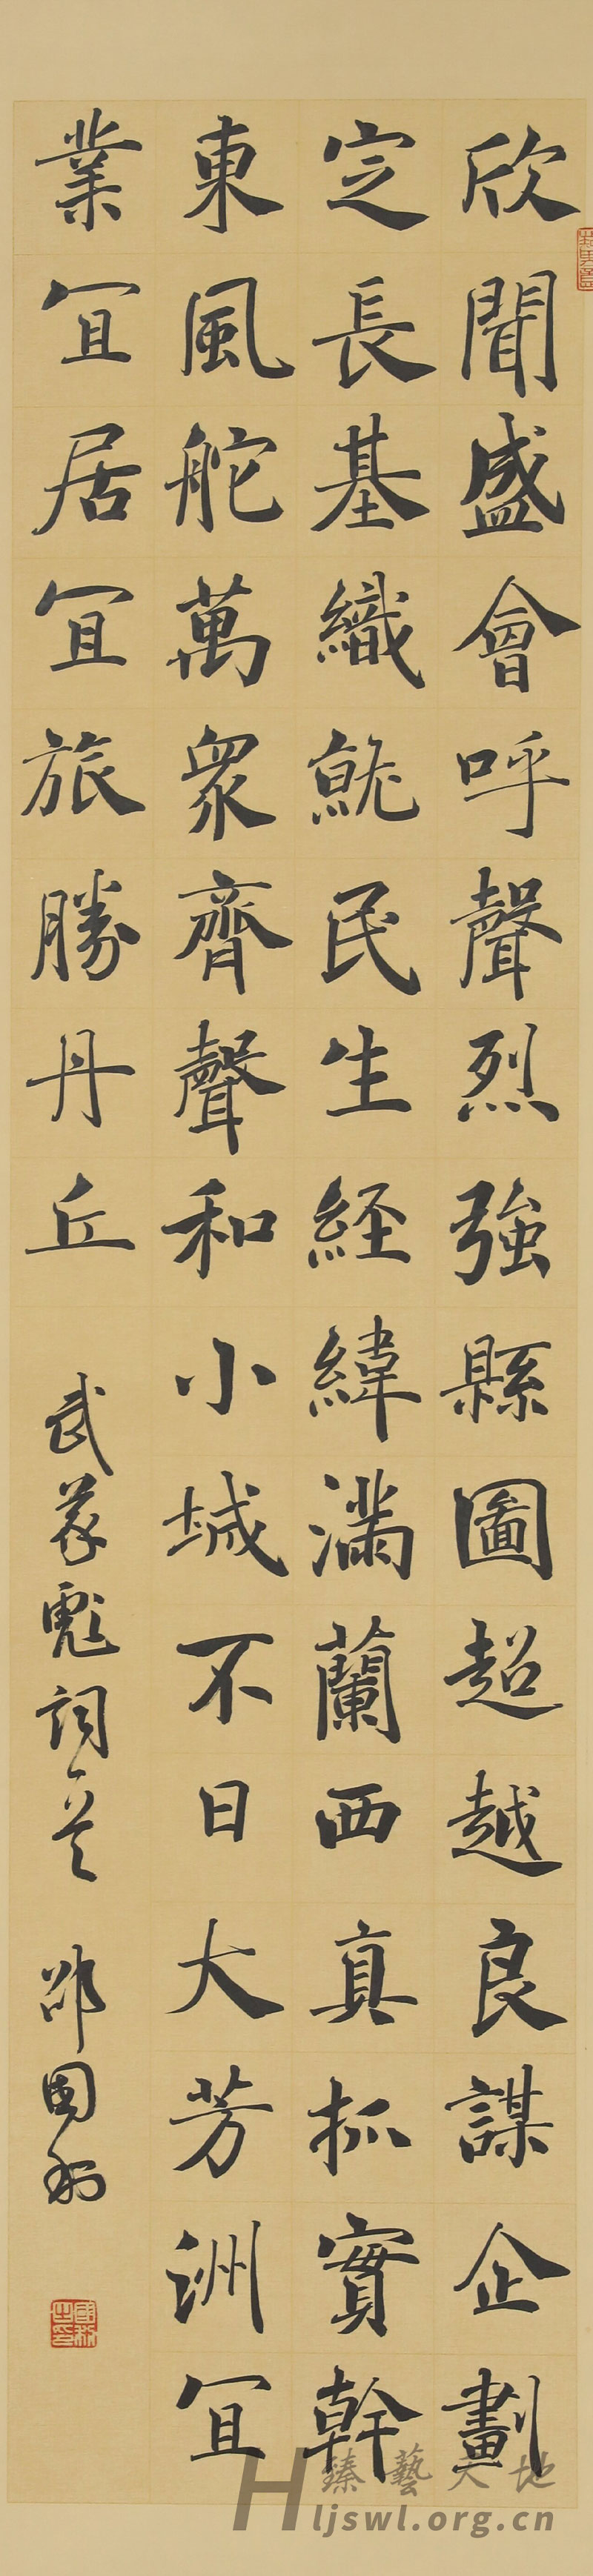 欣聞盛會呼聲烈強縣圖超越良謀企劃
定長基織就民生経緯滿蘭西真抓實幹
東風舵萬衆齊聲和小城不日大芳洲宜
業宜居宜旅勝丹丘
武彖彪詞一首
邵國利
臻藝天地
Hljswl.org.cn